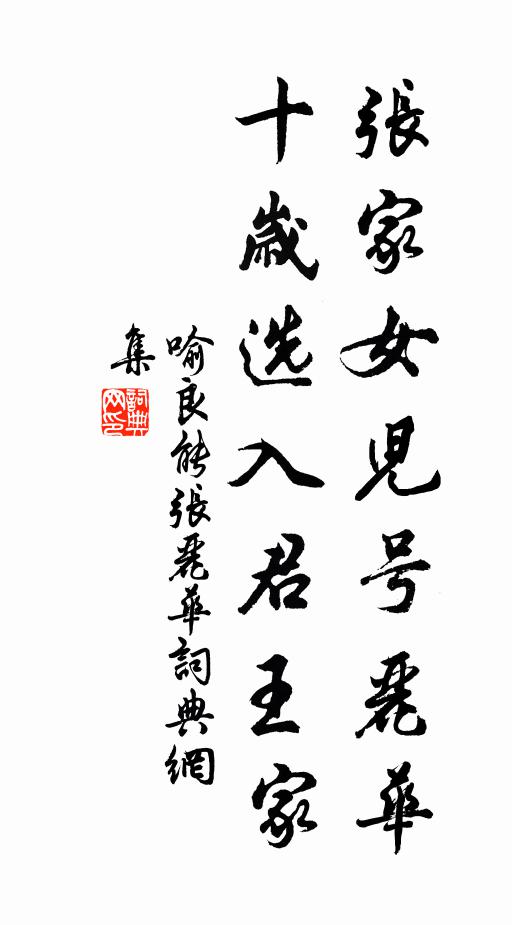 張家女児号麗華
十歲选入君王家
喻良能張麗華詞典網
集
詞典
网印